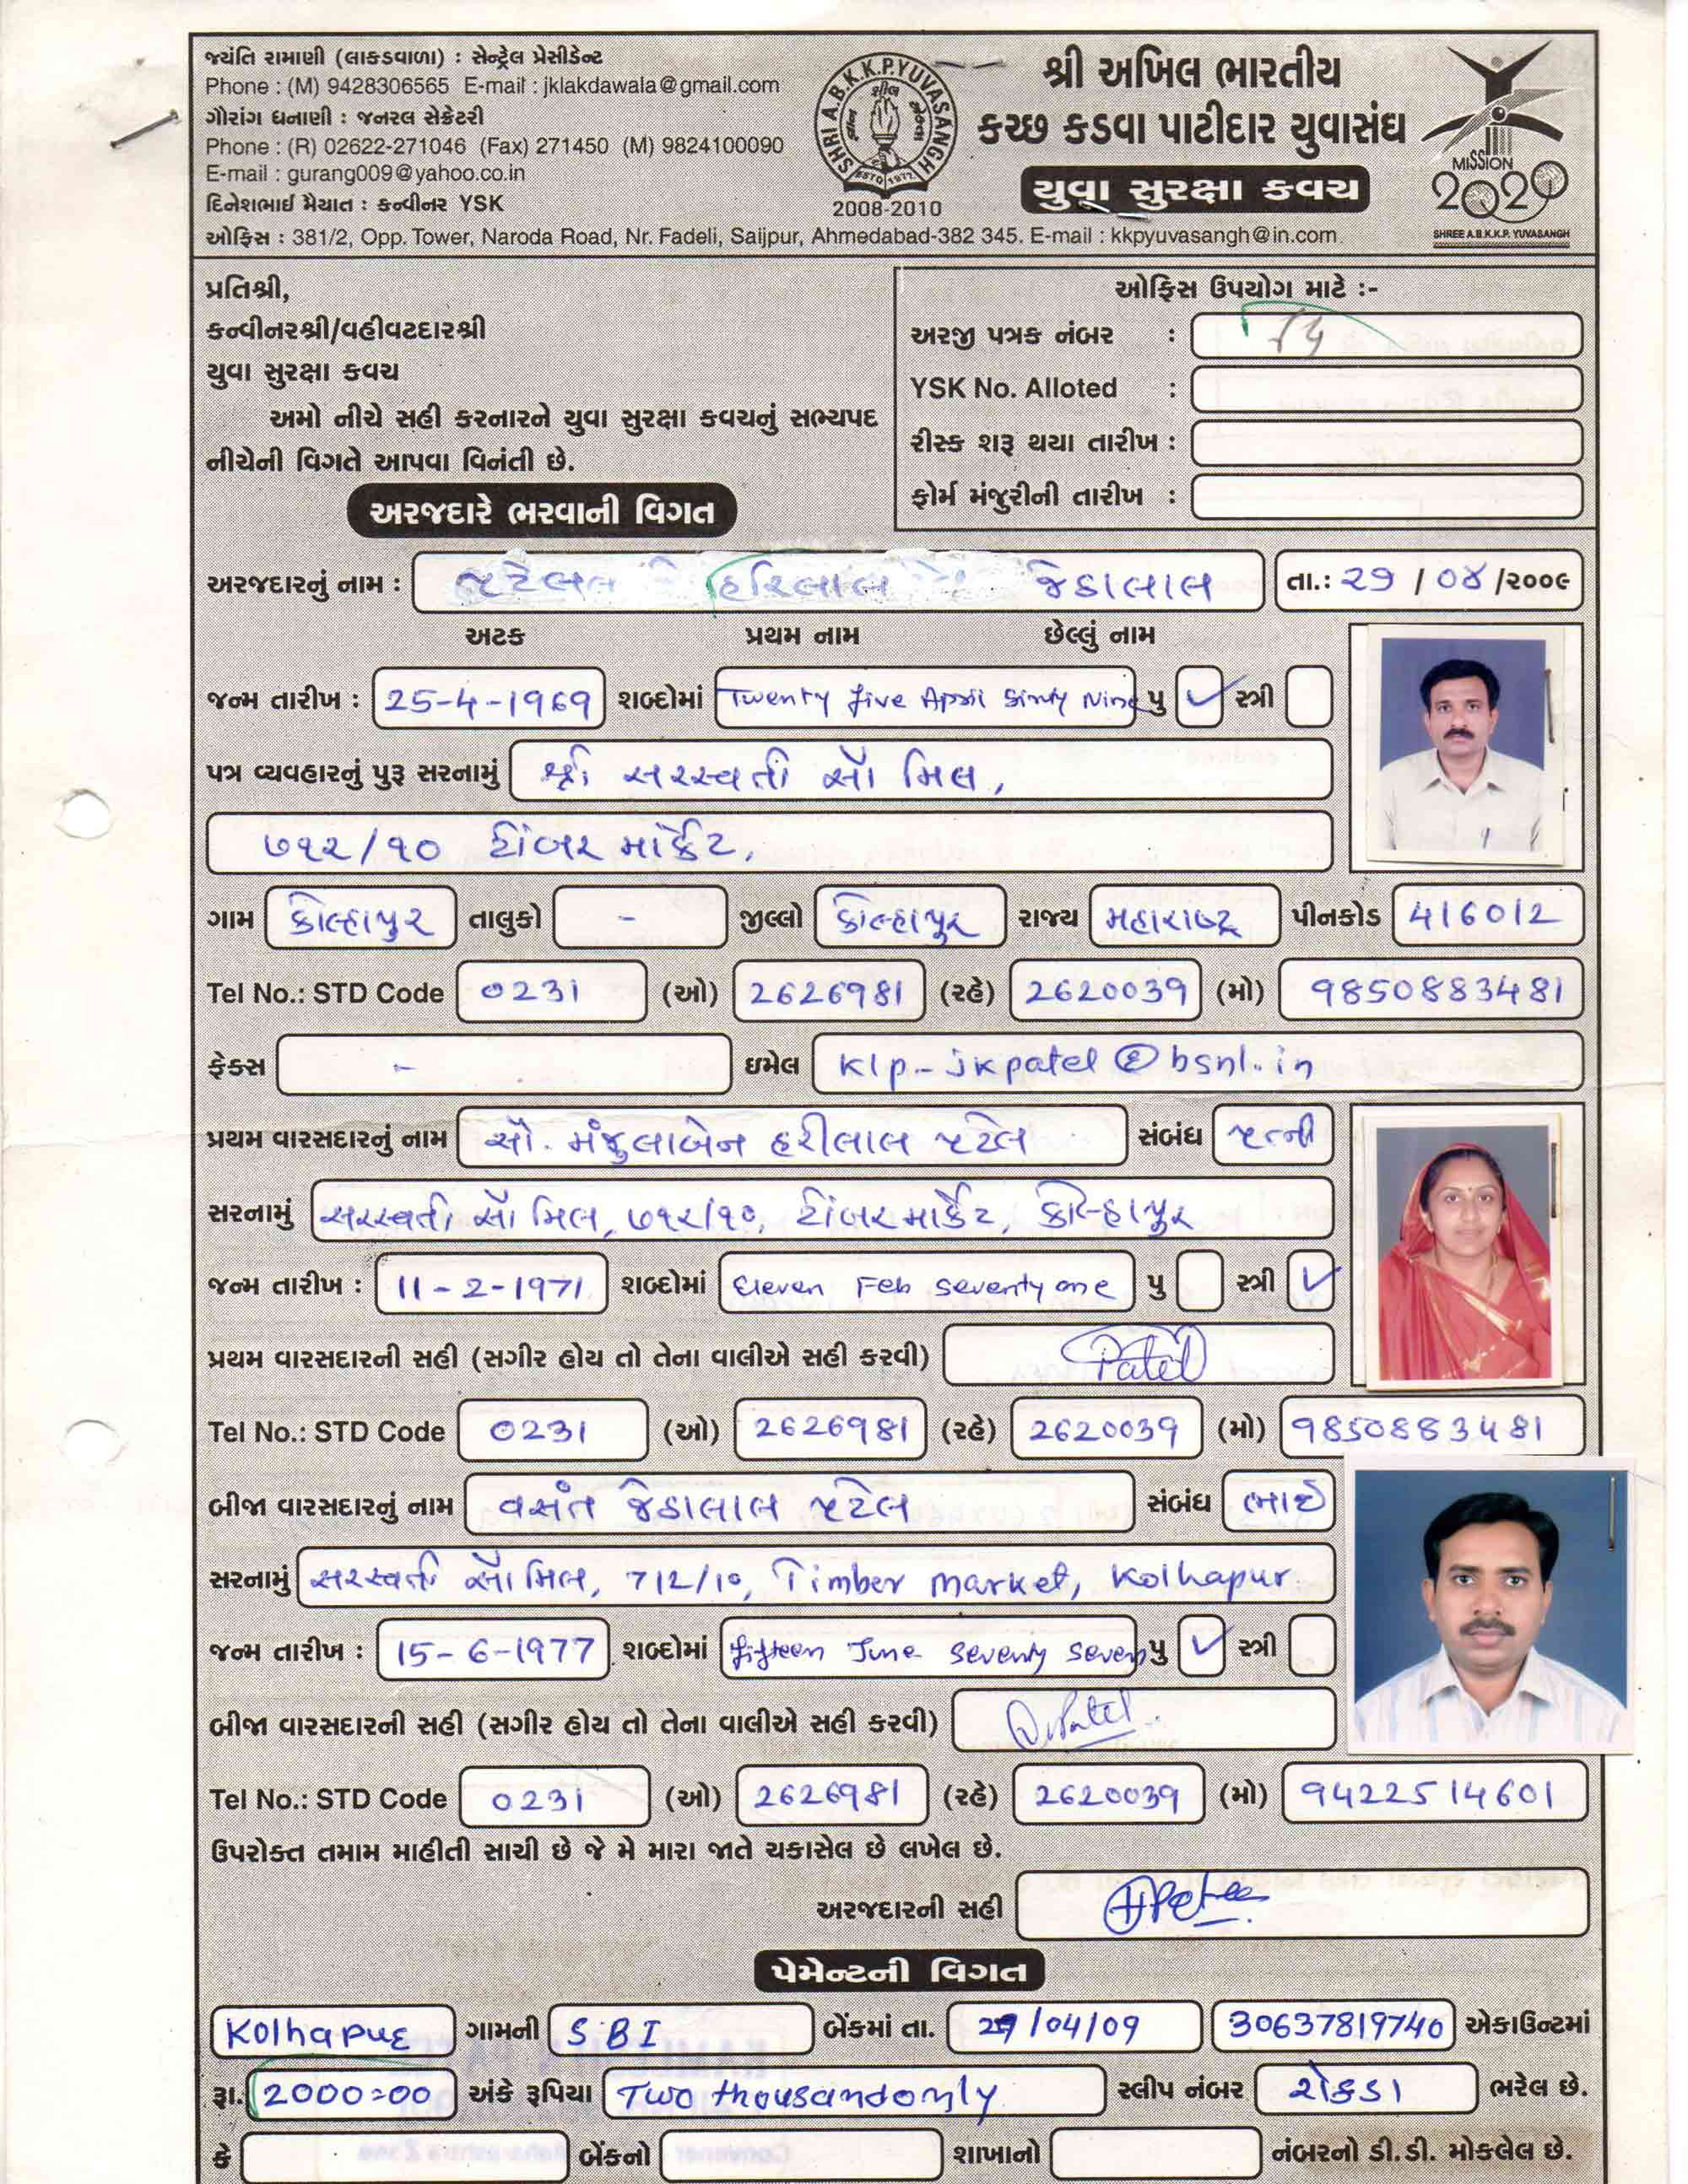 જયંતિ રામાણી (લાકડાવાળા) : સેન્ટ્રેલ પ્રેસીડેન્ટ
Phone : (M) 9428306565 E-mail : jklakdawala@gmail.com
ગૌરાંગ ધનાણી : જનરલ સેક્રેટરી
Phone : (R) 02622-271046 (Fax) 271450 (M) 9824100090
E-mail : gurang009@yahoo.co.in
દિનેશભાઈ મૈયાત : કન્વીનર YSK
SHRI A.B.K.K.P.YUVASANGH
ESTD 1977
2008-2010
શ્રી અખિલ ભારતીય
કચ્છ કડવા પાટીદાર યુવાસંઘ
યુવા સુરક્ષા કવચ
MISSION
2020
SHREE A.B.K.K.P. YUVASANGH
ઓફિસ : 381/2, Opp. Tower, Naroda Road, Nr. Fadeli, Saijpur, Ahmedabad-382 345. E-mail : kkpyuvasangh@in.com.
પ્રતિશ્રી,
કન્વીનરશ્રી/વહીવટદારશ્રી
યુવા સુરક્ષા કવચ
અમો નીચે સહી કરનારને યુવા સુરક્ષા કવચનું સભ્યપદ
નીચેની વિગતે આપવા વિનંતી છે.
ઓફિસ ઉપયોગ માટે :-
અરજી પત્રક નંબર :
YSK No. Alloted :
રીસ્ક શરૂ થયા તારીખ :
ફોર્મ મંજુરીની તારીખ :
અરજદારે ભરવાની વિગત
અરજદારનું નામ : પટેલ હરિલાલ જેઠાલાલ તા.: ૨૯ / ૦૪ /૨૦૦૯
અટક પ્રથમ નામ છેલ્લું નામ
જન્મ તારીખ : 25-4-1969 શબ્દોમાં Twenty five April Sixty Nine પુ ✓ સ્ત્રી
પત્ર વ્યવહારનું પુરૂ સરનામું શ્રી સરસ્વતી સૉ મિલ,
૭૧૨/૧૦ ટીંબર માર્કેટ,
ગામ કોલ્હાપુર તાલુકો - જીલ્લો કોલ્હાપુર રાજ્ય મહારાષ્ટ્ર પીનકોડ 416012
Tel No.: STD Code 0231 (ઓ) 2626981 (રહે) 2620039 (મો) 9850883481
ફેક્સ - ઇમેલ klp-jkpatel@bsnl.in
પ્રથમ વારસદારનું નામ સૌ. મંજુલાબેન હરીલાલ પટેલ સંબંધ પત્ની
સરનામું સરસ્વતી સૉ મિલ, ૭૧૨/૧૦, ટીંબર માર્કેટ, કોલ્હાપુર
જન્મ તારીખ : 11-2-1971 શબ્દોમાં Eleven Feb seventy one પુ સ્ત્રી ✓
પ્રથમ વારસદારની સહી (સગીર હોય તો તેના વાલીએ સહી કરવી) Patel
Tel No.: STD Code 0231 (ઓ) 2626981 (રહે) 2620039 (મો) 9850883481
બીજા વારસદારનું નામ વસંત જેઠાલાલ પટેલ સંબંધ ભાઈ
સરનામું સરસ્વતી સૉ મિલ, 712/10, Timber market, Kolhapur.
જન્મ તારીખ : 15-6-1977 શબ્દોમાં fifteen June seventy seven પુ ✓ સ્ત્રી
બીજા વારસદારની સહી (સગીર હોય તો તેના વાલીએ સહી કરવી)
Tel No.: STD Code 0231 (ઓ) 2626981 (રહે) 2620039 (મો) 9422514601
ઉપરોક્ત તમામ માહીતી સાચી છે જે મે મારા જાતે ચકાસેલ છે લખેલ છે.
અરજદારની સહી
પેમેન્ટની વિગત
Kolhapur ગામની SBI બેંકમાં તા. 29/04/09 30637819740 એકાઉન્ટમાં
રૂા. 2000=00 અંકે રૂપિયા Two thousand only સ્લીપ નંબર રોકડા ભરેલ છે.
કે બેંકનો શાખાનો નંબરનો ડી.ડી. મોકલેલ છે.